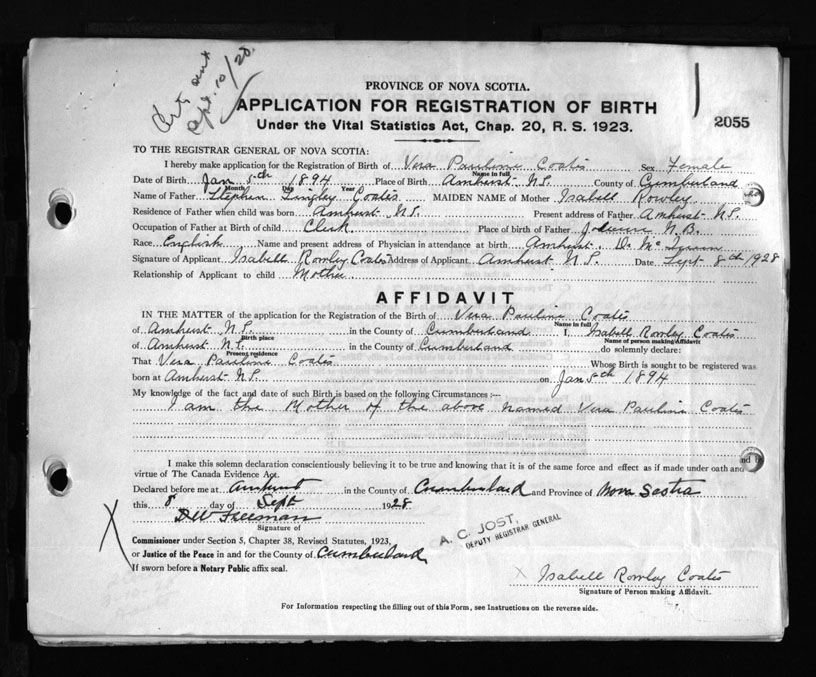 Cert sent
Sept. 10/28
PROVINCE OF NOVA SCOTIA.
APPLICATION FOR REGISTRATION OF BIRTH
Under the Vital Statistics Act, Chap. 20, R. S. 1923.
2055
TO THE REGISTRAR GENERAL OF NOVA SCOTIA:
I hereby make application for the Registration of Birth of Vera Pauline Coates Sex Female
Name in full
Date of Birth Jan 5th 1894 Place of Birth Amherst N.S. County of Cumberland
Month Day Year
Name of Father Stephen Lingley Coates MAIDEN NAME of Mother Isabell Rowley
Residence of Father when child was born Amherst N.S. Present address of Father Amherst N.S.
Occupation of Father at Birth of child Clerk Place of birth of Father N.B.
Race English Name and present address of Physician in attendance at birth Amherst. Dr
Signature of Applicant Isabell Rowley Coates Address of Applicant Amherst N.S. Date Sept 8th 1928
Relationship of Applicant to child Mother
AFFIDAVIT
IN THE MATTER of the application for the Registration of the Birth of Vera Pauline Coates
Name in full
of Amherst N.S. in the County of Cumberland I, Isabell Rowley Coates
Birth place Name of person making Affidavit
of Amherst N.S. in the County of Cumberland do solemnly declare:
Present residence
That Vera Pauline Coates Whose Birth is sought to be registered was
born at Amherst N.S. on Jan 5th 1894
My knowledge of the fact and date of such Birth is based on the following Circumstances :—
I am the Mother of the above named Vera Pauline Coates
I make this solemn declaration conscientiously believing it to be true and knowing that it is of the same force and effect as if made under oath and by
virtue of The Canada Evidence Act.
Declared before me at Amherst in the County of Cumberland and Province of Nova Scotia
this 8 day of Sept 1928
D W Freeman
Signature of
A. C. JOST,
DEPUTY REGISTRAR GENERAL
Commissioner under Section 5, Chapter 38, Revised Statutes, 1923,
or Justice of the Peace in and for the County of Cumberland
If sworn before a Notary Public affix seal.
X Isabell Rowley Coates
Signature of Person making Affidavit.
For Information respecting the filling out of this Form, see Instructions on the reverse side.